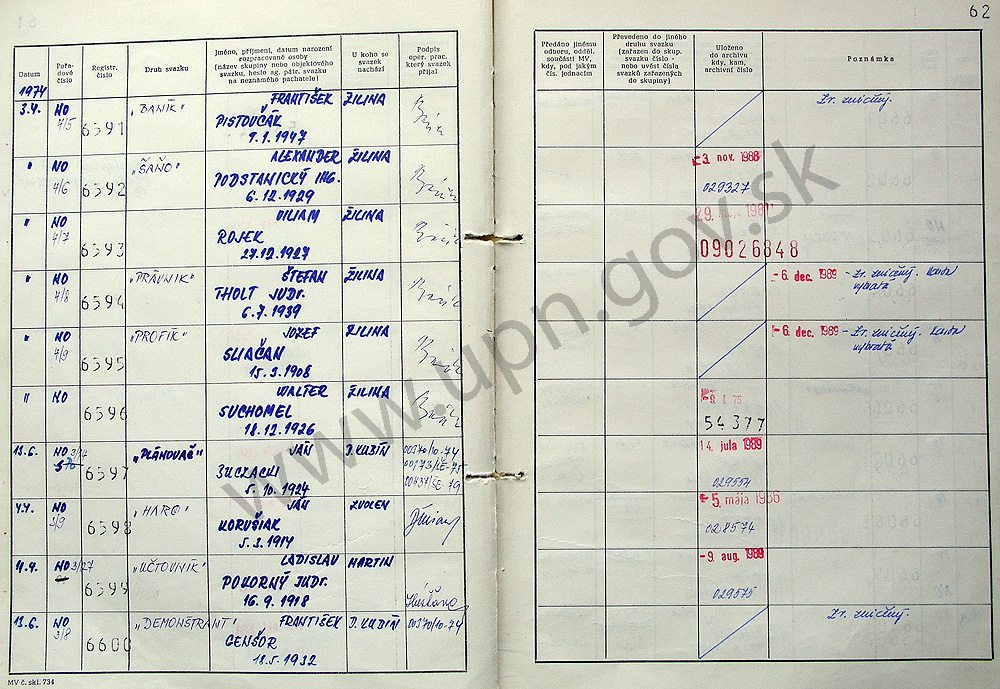 62
Datum
Pořa-
dové
číslo
Registr.
číslo
Druh svazku
Jméno, příjmení, datum narození
rozpracované osoby
(název skupiny nebo objektového
svazku, heslo ag. pátr. svazku
na neznámého pachatele)
U koho se
svazek
nachází
Podpis
oper. prac.
který svazek
přijal
Předáno jinému
odboru, odděl.
součásti MV,
kdy, pod jakým
čís. jednacím
Převedeno do jiného
druhu svazku
(zařazen do skup.
svazku číslo -
nebo uvést čísla
svazků zařazených
do skupiny)
Uloženo
do archivu
kdy, kam,
archivní číslo
Poznámka
1974
3.4. NO 4/5 6591 "BANÍK" FRANTIŠEK ŽILINA
PISTOVČÁK
9.1.1947
Zr. zničný.
" NO 4/6 6592 "ŠAŇO" ALEXANDER ŽILINA
PODSTANICKÝ ING.
6.12.1929
3. nov. 1988
029327
" NO 4/7 6593 VILIAM ŽILINA
ROJEK
27.12.1927
09026848
" NO 4/8 6594 "PRÁVNIK" ŠTEFAN ŽILINA
THOLT JUDr.
6.7.1939
-6. dec. 1989 - Zr. zničný. Karta
vybratá
" NO 4/9 6595 "PROFÍK" JOZEF ŽILINA
SLIAČAN
15.3.1908
-6. dec. 1989 - Zr. zničný. Karta
vybratá
" NO 6596 WALTER ŽILINA
SUCHOMEL
18.12.1926
54377
13.6. NO 6597 "PLÁNOVAČ" JÁN D. KUBÍN
5.10.1924
00370/10-74
00173/ŠE-75
00437/ŠE 79
14. júla 1989
029554
4.4. NO 5/9 6598 "HARO" JÁN ZVOLEN
KORUŠIAK
5.3.1914
5. mája 1986
028574
4.4. NO 3/27 6599 "ÚČTOVNÍK" LADISLAV MARTIN
POKORNÝ JUDr.
16.9.1918
-9. aug. 1989
029575
13.6. NO 3/8 6600 "DEMONŠTRANT" FRANTIŠEK D. KUBÍN 00370/10-74
CENŠOR
18.5.1932
Zr. zničný.
MV č. skl. 734
www.upn.gov.sk